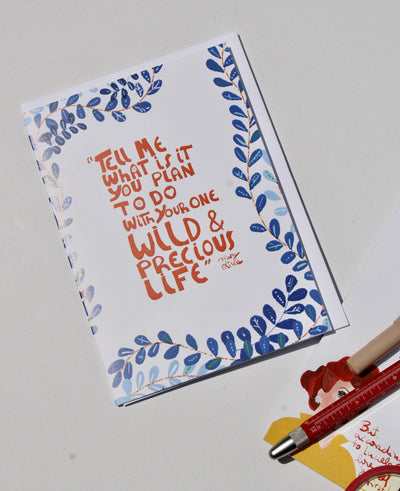 "TELL ME
WHAT IS IT
YOU PLAN
TO DO
WITH YOUR ONE
WILD &
PRECIOUS
LIFE"
Mary
But
according
to
love
of